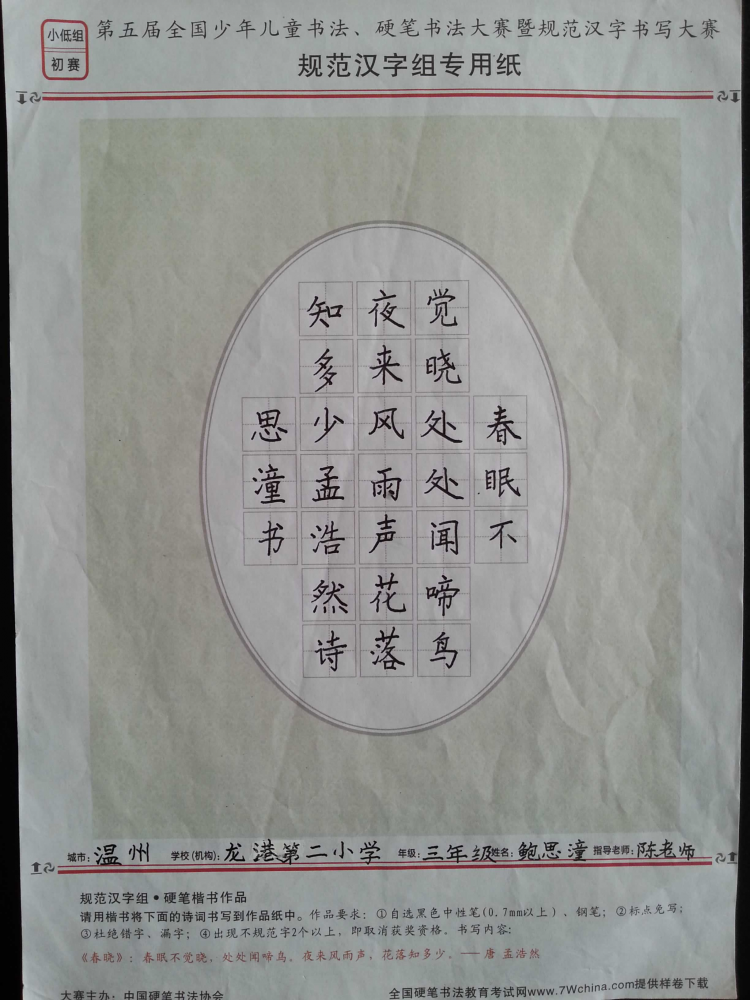 小低组
初赛
第五届全国少年儿童书法、硬笔书法大赛暨规范汉字书写大赛
规范汉字组专用纸
春眠不
觉晓处处闻啼鸟
夜来风雨声花落
知多少孟浩然诗
思潼书
城市：温州 学校(机构)：龙港第二小学 年级：三年级 姓名：鲍思潼 指导老师：陈老师
规范汉字组•硬笔楷书作品
请用楷书将下面的诗词书写到作品纸中。作品要求：①自选黑色中性笔(0.7mm以上)、钢笔；②标点免写；
③杜绝错字、漏字；④出现不规范字2个以上，即取消获奖资格。书写内容：
《春晓》：春眠不觉晓，处处闻啼鸟。夜来风雨声，花落知多少。——唐 孟浩然
大赛主办：中国硬笔书法协会 全国硬笔书法教育考试网www.7Wchina.com提供样卷下载